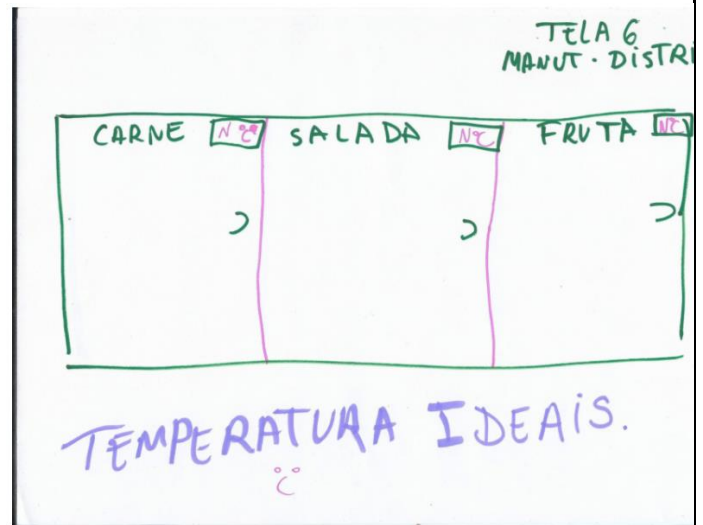 TELA 6
MANUT. DiSTRI
CARNE N°C SALADA N°C FRUTA N°C
TEMPERATURA IDEAiS.
°C